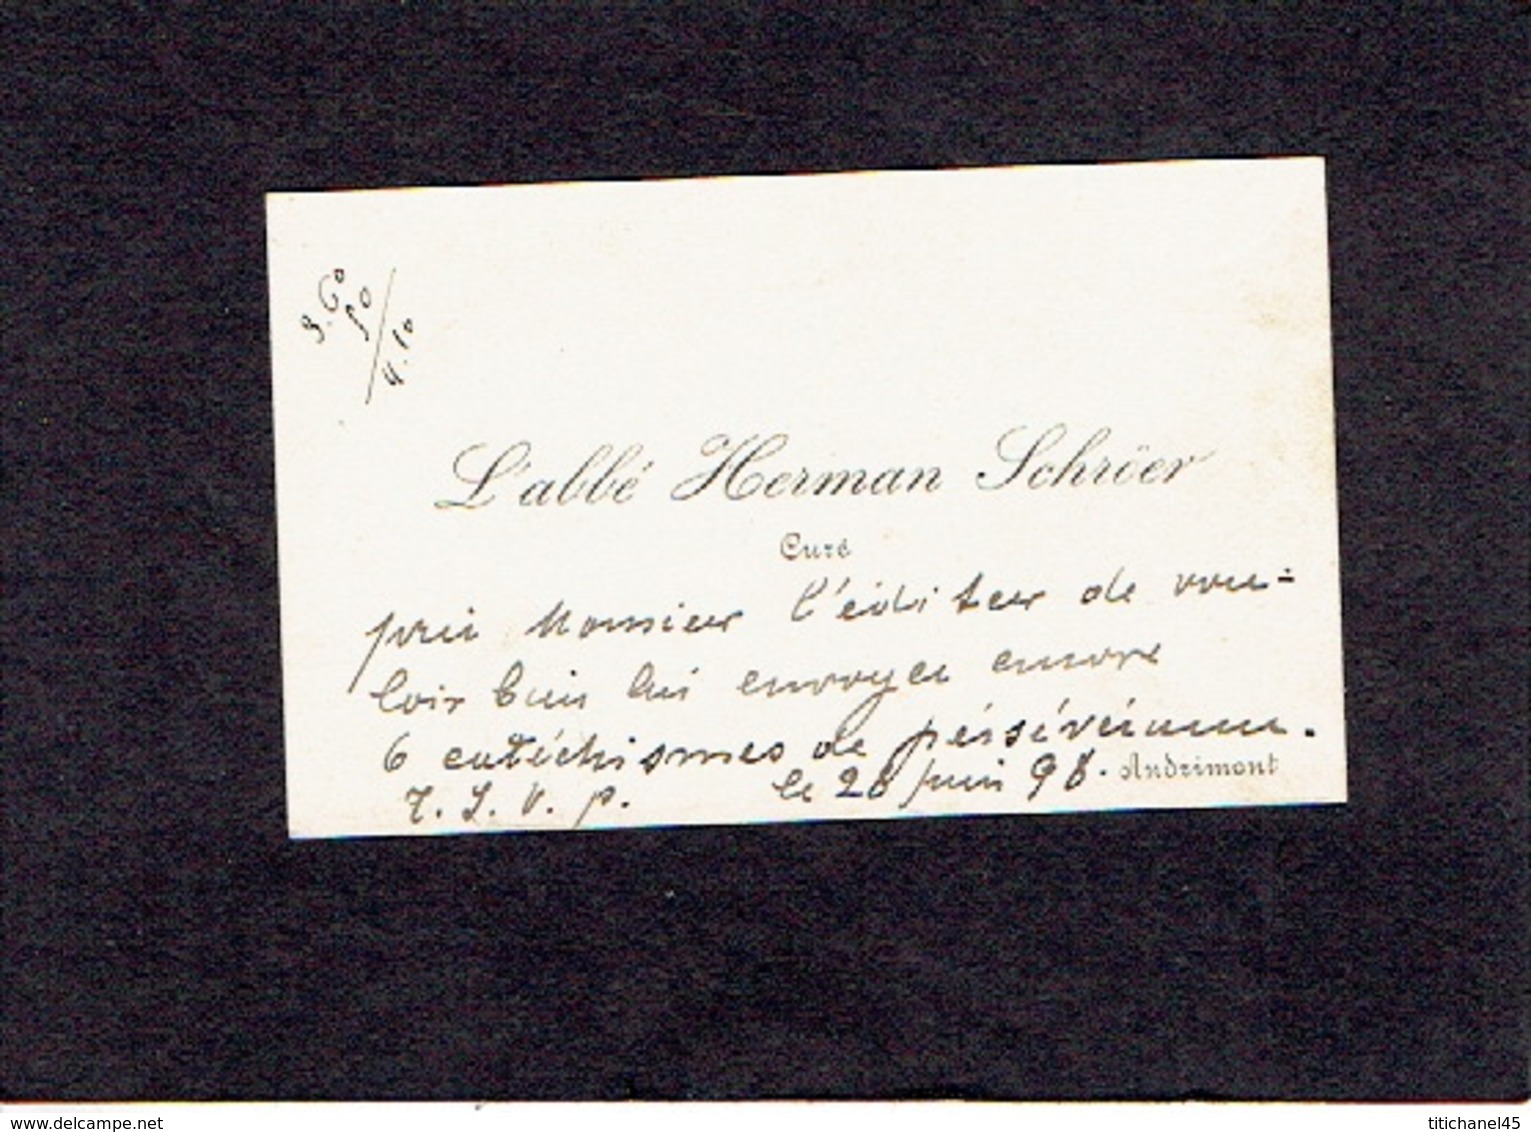 3.60
50
4.10
L'abbé Herman Schröer
Curé
prie Monsieur l'éditeur de vou=
loir bien lui envoyer encore
6 catéchismes de persévérance.
T. S. V. p. le 26 Juin 98. Andrimont
www.delcampe.net
titichanel45